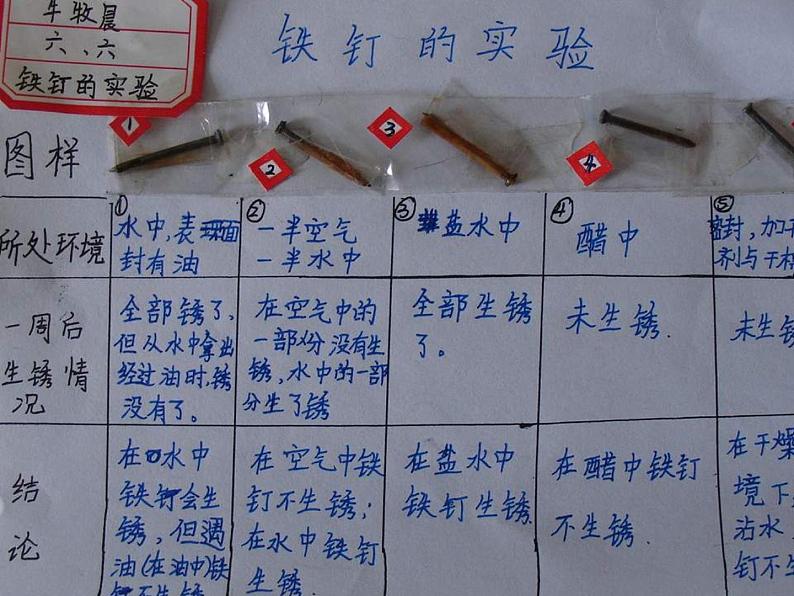 牛牧晨
六、六
铁钉的实验
铁钉的实验
1
2
3
4
图样
①
②
③
④
⑤
所处环境
水中,表面
封有油
一半空气
一半水中
盐水中
醋中
密封,加干
剂与干
一周后
生锈情
况
全部锈了,
但从水中拿出
经过油时,锈
没有了。
在空气中的
一部份没有生
锈,水中的一部
分生了锈
全部生锈
了。
未生锈.
未生锈
结
论
在水中
铁钉会生
锈,但遇
油(在油中)铁
不生锈
在空气中铁
钉不生锈;
在水中铁钉
生锈.
在盐水中
铁钉生锈.
在醋中铁钉
不生锈.
在干燥
境下
沾水
钉不生